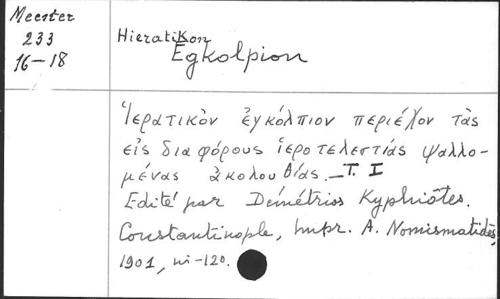 Meester
233
16-18
Hieratikon
Egkolpion
Ἱερατικὸν ἐγκόλπιον περιέχον τὰς
εἰς διαφόρους ἱεροτελεστίας ψαλλο-
μένας ἀκολουθίας. _ T. I
Edité par Démétrios Kyphiôtes.
Constantinople, Impr. A. Nomismatidès,
1901, in-120.